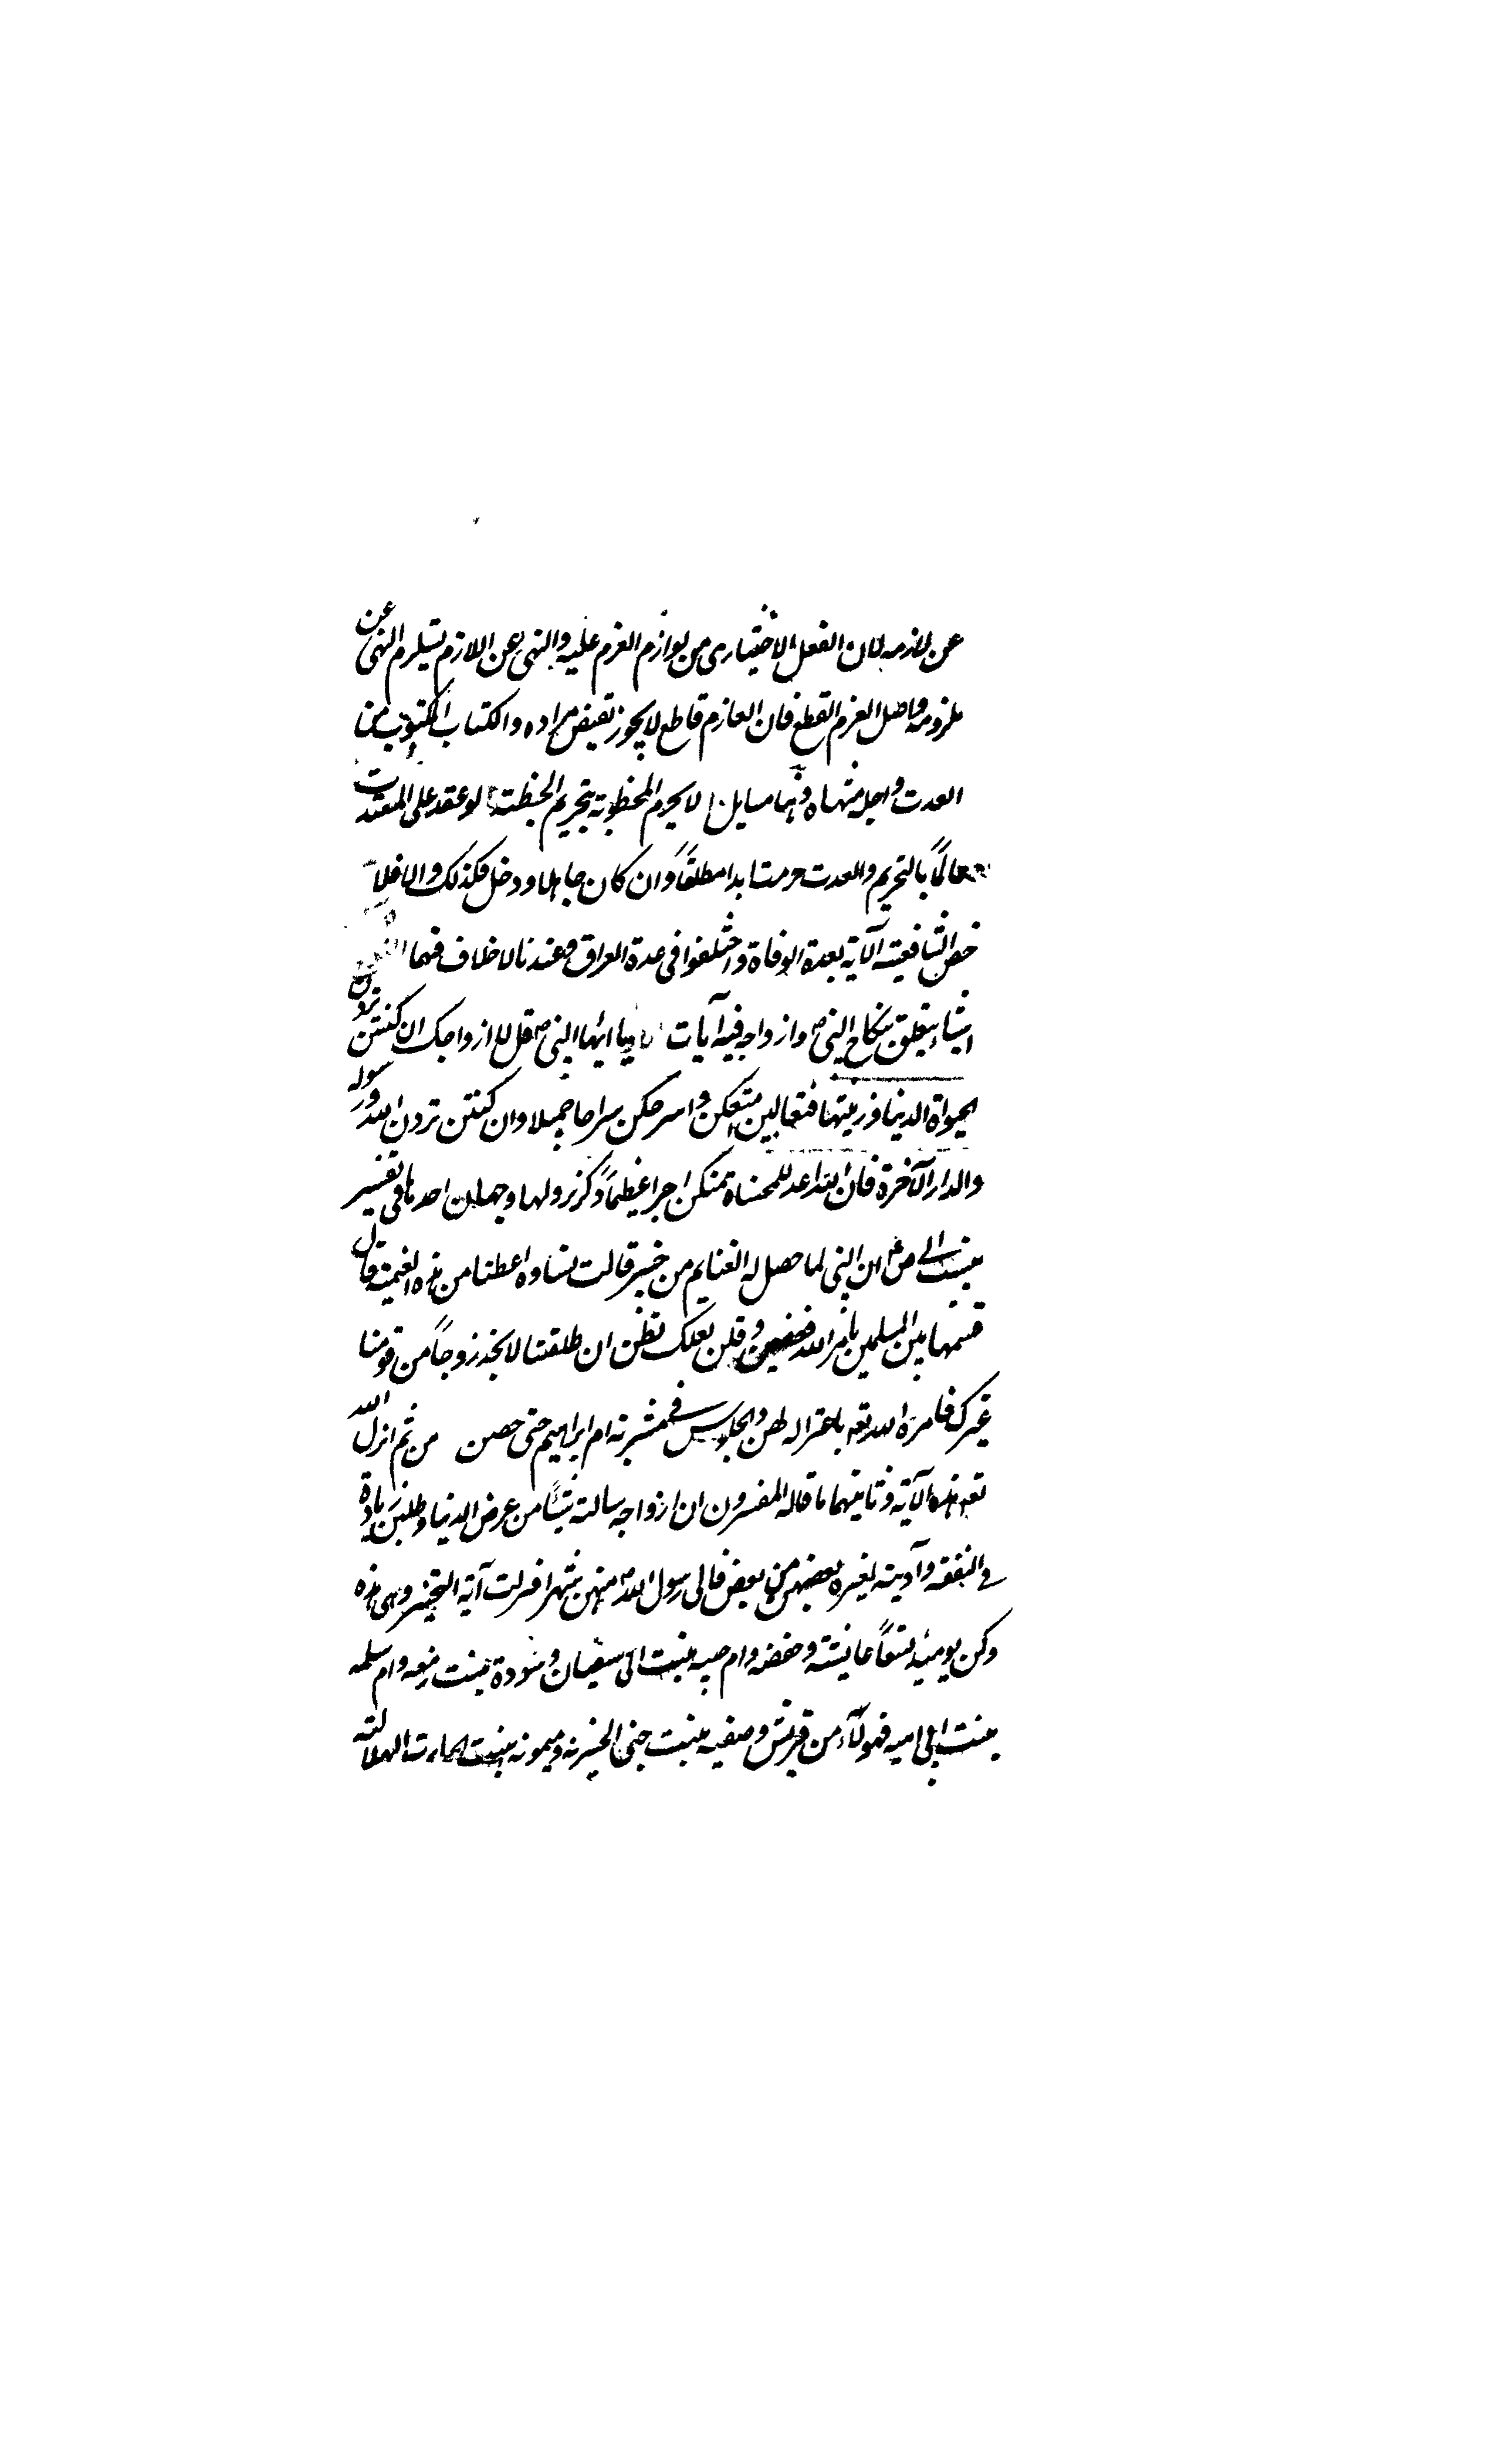 عن لازمه لان الفعل الاختياری من لوازم العزم علیه والنهی عن اللازم یستلزم النهی عن
ملزومه واصل العزم القطع فان العازم قاطع لا یجوز نقیض مراده والکتاب المکتوب من
العدت واجله منتهاه وهنا مسایل ا لا یحرم المخطوبة بتحریم الخطبة ب لو عقد علی المعتدت
عالماً بالتحریم والعدت حرمت ابدا مطلقاً وان کان جاهلا ودخل فکذلک والا فلا
خص الشافعیة الآیة بعدة الوفاة واختلفوا فی عدة الفراق وعندنا لا خلاف فیهما
اشیاء یتعلق بنکاح النبی ص وازواجه فیه آیات یا ایها النبی ص قل لازواجک ان کنتن تردن
الحیواة الدنیا وزینتها فتعالین امتعکن واسرحکن سراحا جمیلا وان کنتن تردن الله ورسوله
والدار الآخرة فان الله اعد للمحسناة منکن اجرا عظیماً ذکر نزولها وجهان احدهما فی تفسیر
ان النبی لما حصل له الغنایم من خیبر قالت نساوه اعطنا من هذه الغنیمة قال
قسمتها بین المسلمین بامر الله فغضبن وقلن لعلک تظن ان طلقتنا لا نجد زوجاً من قومنا
غیرک فامره الله تعه باعتزاله لهن والجلوس فی مشربة ام ابراهیم حتی حضن من ثم انزل الله
تعه هذه الآیة وثانیهما ما قاله المفسرون ان ازواجه سالته شیئاً من عرض الدنیا وطلبن زیادة
فی النفقة وآذینه لغیرة بعضهن من بعض فالی رسول الله ص منهن شهرا فنزلت آیة التخییر وهی هذه
وکن یومئذ تسعاً عایشة وحفصه وام حبیبه بنت ابی سفیان وسودة بنت زمعه وام سلمه
بنت ابی امیه فهولآء من قریش وصفیه بنت حیی الخیبریه ومیمونه بنت الحارث الهلالیة